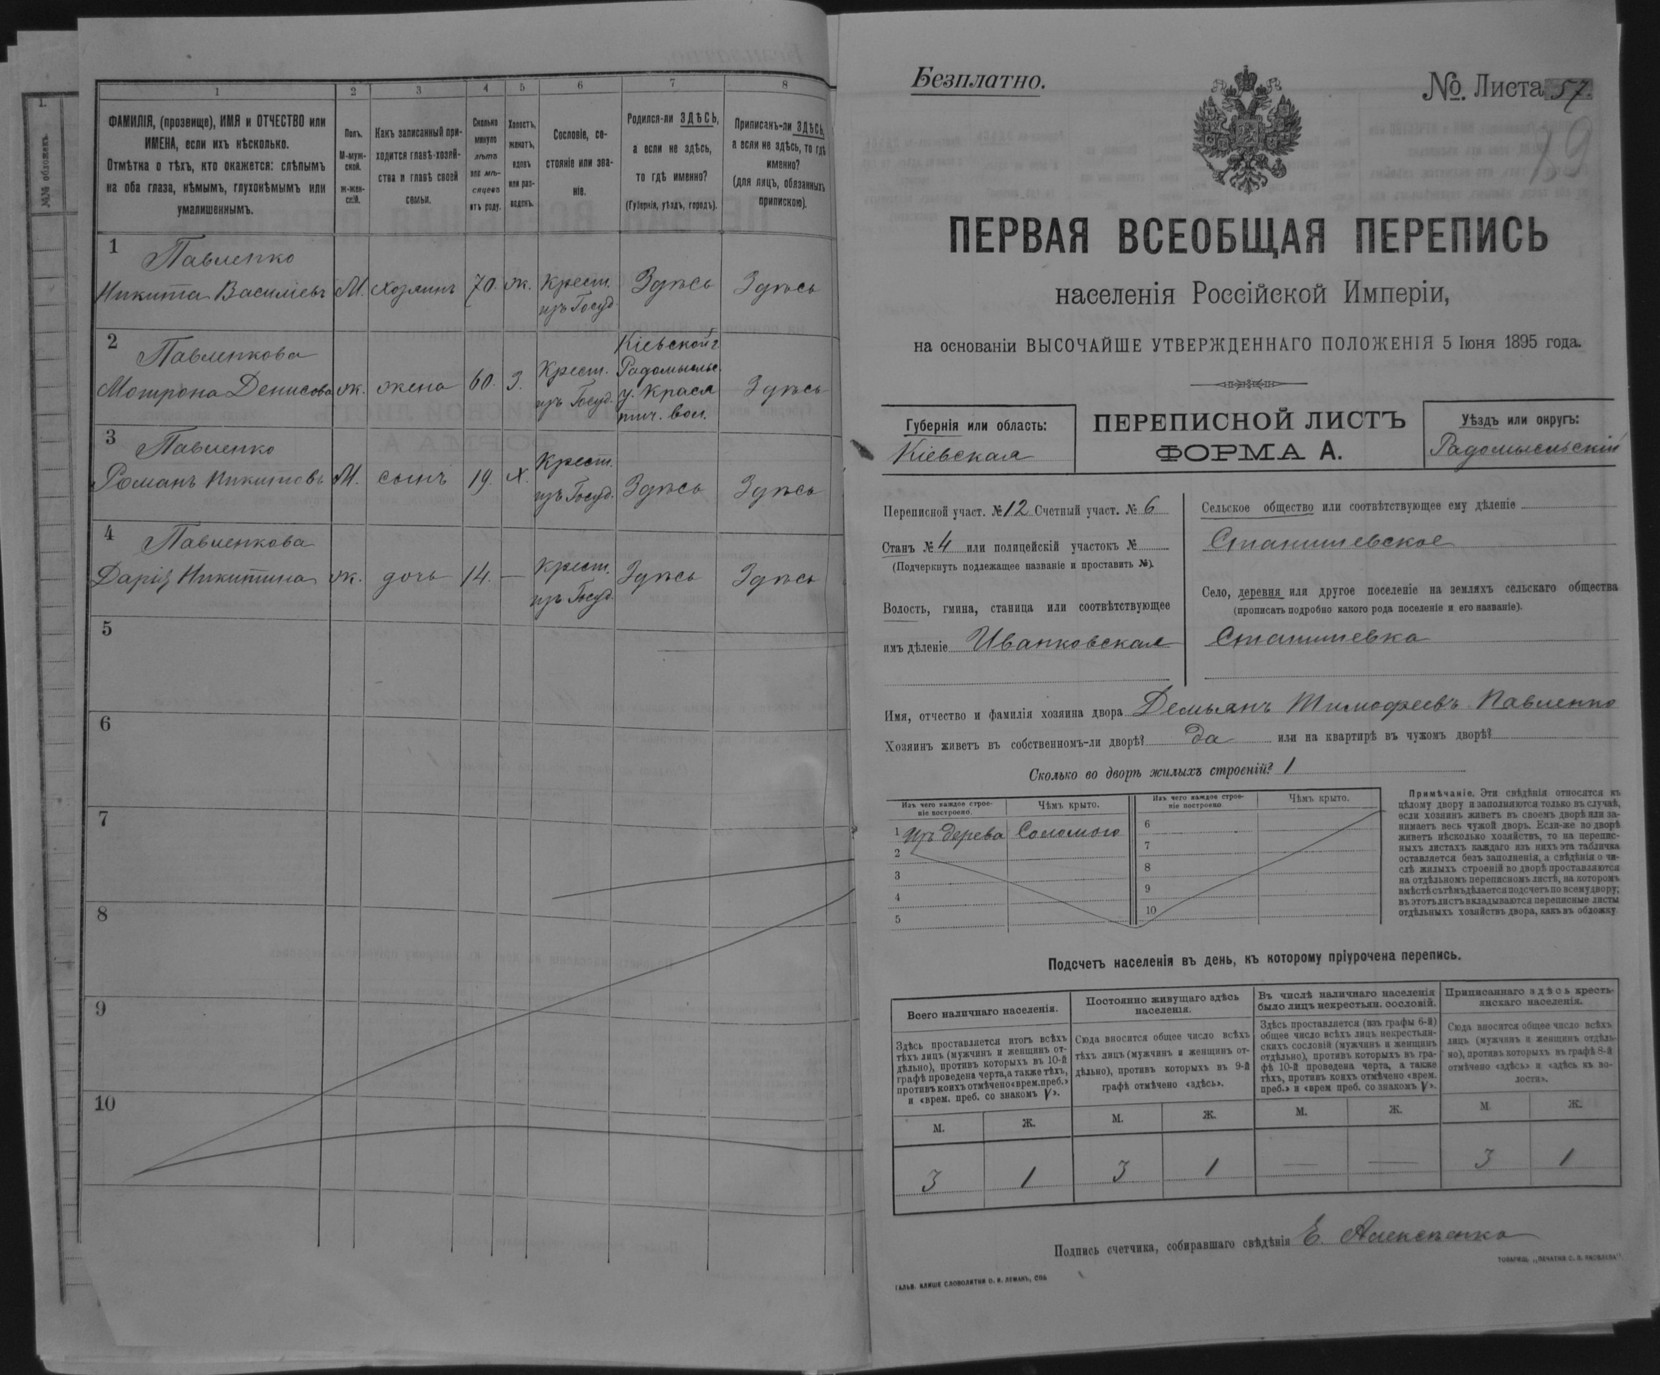 1.
№№ обложекъ
1 2 3 4 5 6 7 8
ФАМИЛІЯ, (прозвище), ИМЯ и ОТЧЕСТВО или
ИМЕНА, если ихъ нѣсколько.
Отмѣтка о тѣхъ, кто окажется: слѣпымъ
на оба глаза, нѣмымъ, глухонѣмымъ или
умалишеннымъ.
Полъ.
М-муж-
ской.
ж-жен-
скій.
Какъ записанный при-
ходится главѣ-хозяй-
ства и главѣ своей
семьи.
Сколько
минуло
лѣтъ
или мѣ-
сяцевъ
отъ роду.
Холостъ,
женатъ,
вдовъ
или раз-
веденъ.
Сословіе, со-
стояніе или зва-
ніе.
Родился-ли ЗДѢСЬ,
а если не здѣсь,
то гдѣ именно?
(Губернія, уѣздъ, городъ).
Приписанъ-ли ЗДѢСЬ,
а если не здѣсь, то гдѣ
именно?
(для лицъ, обязанныхъ
припискою).
1
Павленко
Никита Василіевъ М. хозяинъ 70. ж. Крест. изъ Госуд. Здѣсь Здѣсь
2
Павленкова
Мотрона Денисова ж. жена 60. З. Крест. изъ Госуд.
Кіевской г
Радомысльс
у. Крася
тич. вол.
Здѣсь
3
Павленко
Романъ Никитовъ М. сынъ 19. х. Крест. изъ Госуд. Здѣсь Здѣсь
4
Павленкова
Дарія Никитина ж. дочь 14. — Крест. изъ Госуд. Здѣсь Здѣсь
5
6
7
8
9
10
Безплатно.
№. Листа 57.
19
ПЕРВАЯ ВСЕОБЩАЯ ПЕРЕПИСЬ
населенія Россійской Имперіи,
на основаніи ВЫСОЧАЙШЕ УТВЕРЖДЕННАГО ПОЛОЖЕНІЯ 5 Іюня 1895 года.
Губернія или область:
Кіевская
ПЕРЕПИСНОЙ ЛИСТЪ
ФОРМА А.
Уѣздъ или округъ:
Радомысльскій
Переписной участ. № 12 Счетный участ. № 6
Станъ № 4 или полицейскій участокъ №
(Подчеркнуть подлежащее названіе и проставить №).
Волость, гмина, станица или соотвѣтствующее
имъ дѣленіе Иванковская
Сельское общество или соотвѣтствующее ему дѣленіе
Станишевское
Село, деревня или другое поселеніе на земляхъ сельскаго общества
(прописать подробно какого рода поселеніе и его названіе).
Станишевка
Имя, отчество и фамилія хозяина двора Демьянъ Тимофеевъ Павленко
Хозяинъ живетъ въ собственномъ-ли дворѣ? Да или на квартирѣ въ чужомъ дворѣ?
Сколько во дворѣ жилыхъ строеній? 1
Изъ чего каждое строе-
ніе построено.
Чѣмъ крыто.
Изъ чего каждое строе-
ніе построено.
Чѣмъ крыто.
1 Изъ дерева Соломою
2
3
4
5
6
7
8
9
10
Примѣчаніе. Эти свѣдѣнія относятся къ
цѣлому двору и заполняются только въ случаѣ,
если хозяинъ живетъ въ своемъ дворѣ или за-
нимаетъ весь чужой дворъ. Если-же во дворѣ
живетъ нѣсколько хозяйствъ, то на перепис-
ныхъ листахъ каждаго изъ нихъ эта табличка
оставляется безъ заполненія, а свѣдѣнія о чи-
слѣ жилыхъ строеній во дворѣ проставляются
на отдѣльномъ переписномъ листѣ, на которомъ
вмѣстѣ съ тѣмъ дѣлается подсчетъ по всему двору;
въ этотъ листъ вкладываются переписные листы
отдѣльныхъ хозяйствъ двора, какъ въ обложку
Подсчетъ населенія въ день, къ которому пріурочена перепись.
Всего наличнаго населенія.
Постоянно живущаго здѣсь
населенія.
Въ числѣ наличнаго населенія
было лицъ некрестьян. сословій.
Приписаннаго здѣсь кресть-
янскаго населенія.
Здѣсь проставляется итогъ всѣхъ
тѣхъ лицъ (мужчинъ и женщинъ от-
дѣльно), противъ которыхъ въ 10-й
графѣ проведена черта, а также тѣхъ,
противъ коихъ отмѣчено «врем. преб.»
и «врем. преб. со знакомъ V».
Сюда вносится общее число всѣхъ
тѣхъ лицъ (мужчинъ и женщинъ от-
дѣльно), противъ которыхъ въ 9-й
графѣ отмѣчено «здѣсь».
Здѣсь проставляется (изъ графы 6-й)
общее число всѣхъ лицъ некрестьян-
скихъ сословій (мужчинъ и женщинъ
отдѣльно), противъ которыхъ въ гра-
фѣ 10-й проведена черта, а также
тѣхъ, противъ коихъ отмѣчено «врем.
преб.» и «врем преб. со знакомъ V».
Сюда вносится общее число всѣхъ
лицъ (мужчинъ и женщинъ отдѣль-
но), противъ которыхъ въ графѣ 8-й
отмѣчено «здѣсь» и «здѣсь въ во-
лости».
М. Ж. М. Ж. М. Ж. М. Ж.
3 1 3 1 — — 3 1
Подпись счетчика, собиравшаго свѣдѣнія Е. Алексѣенко
ГАЛЬВ. КЛИШЕ СЛОВОЛИТНИ О. И. ЛЕМАНЪ, СПБ
ТОВАРИЩ. „ПЕЧАТНЯ С. П. ЯКОВЛЕВА“